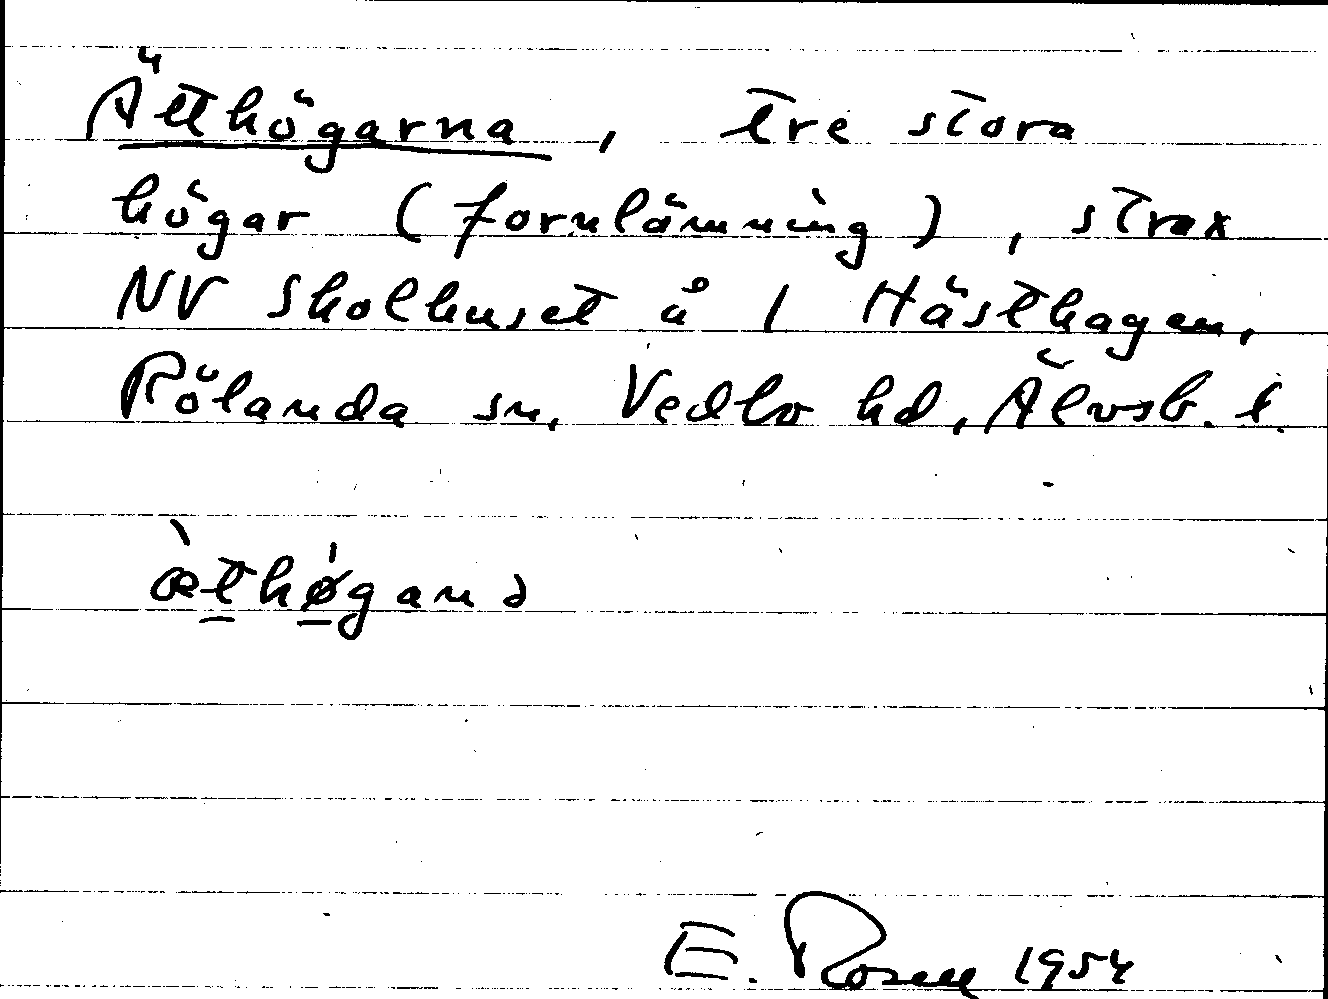 Ätthögarna, tre stora
högar (fornlämning), strax
NV Skolhuset å 1 Hästhagen,
Rölanda sn, Vedbo hd, Älvsb. l.
æ̀t̲hǿ̲ganə
E. Rosell 1954